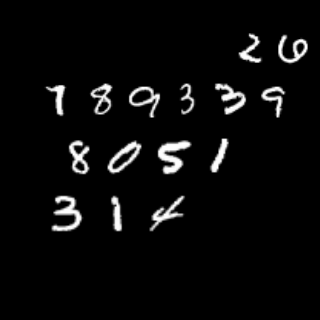 26
789339
8051
314